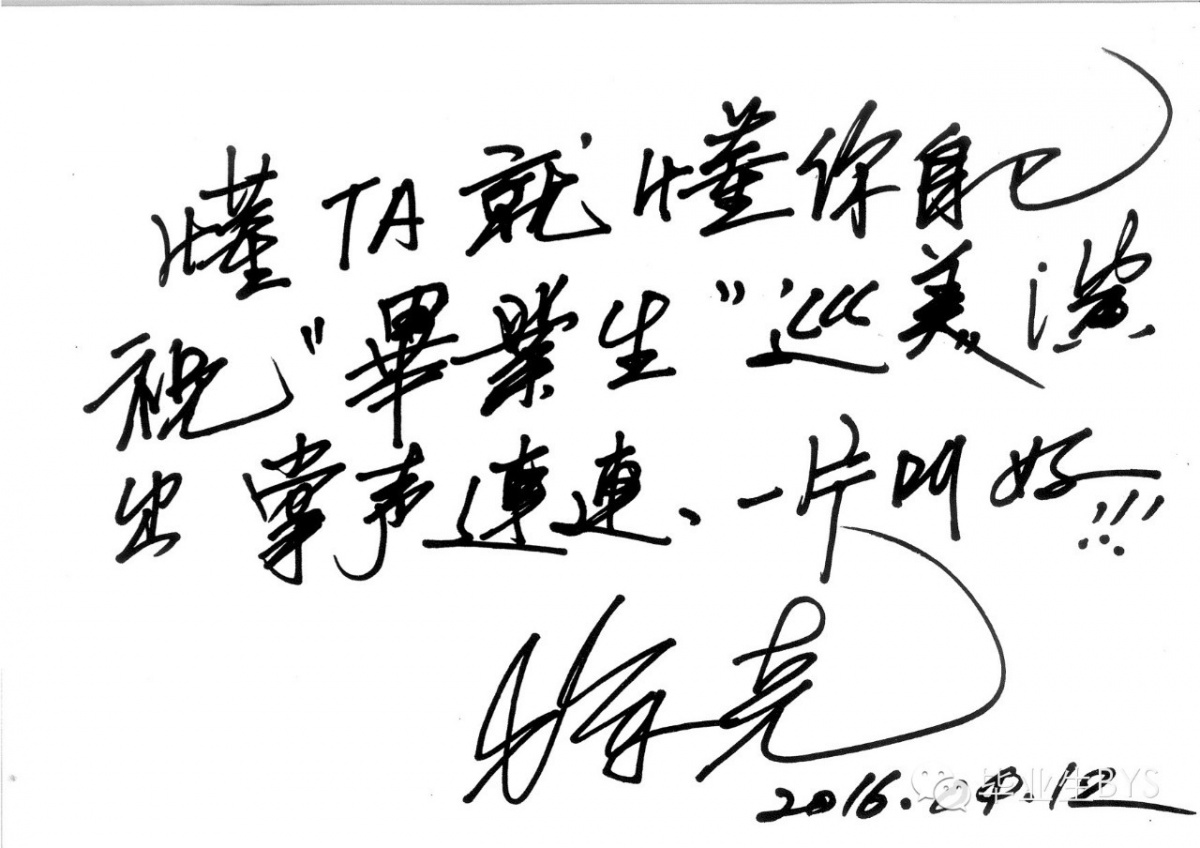 懂TA就懂你自己
祝“畢業生”巡美演
出掌声連連、一片叫好!!!
徐克
毕业生BYS